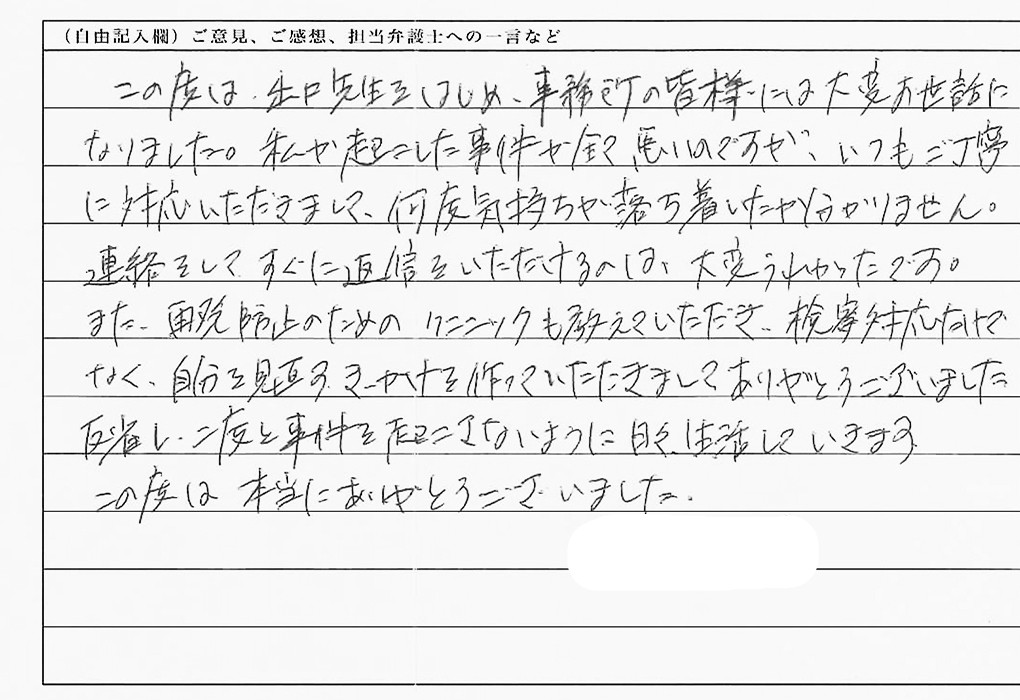 （自由記入欄）ご意見、ご感想、担当弁護士への一言など
この度は、出口先生をはじめ、事務所の皆様には大変お世話に
なりました。私が起こした事件が全て悪いのですが、いつもご丁寧
に対応いただきまして、何度気持ちが落ち着いたか分かりません。
連絡をして、すぐに返信をいただけるのは、大変うれしかったです。
また、再発防止のためのクリニックも教えていただき、検察対応だけで
なく、自分を見直すきっかけを作っていただきましてありがとうございました
反省し、二度と事件を起こさないように日々、生活していきます。
この度は本当にありがとうございました。